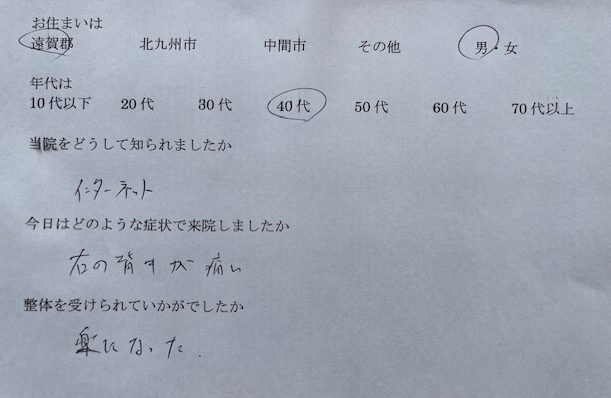 お住まいは
遠賀郡 北九州市 中間市 その他 男・女
年代は
10代以下 20代 30代 40代 50代 60代 70代以上
当院をどうして知られましたか
インターネット
今日はどのような症状で来院しましたか
右の背中が痛い
整体を受けられていかがでしたか
楽になった.